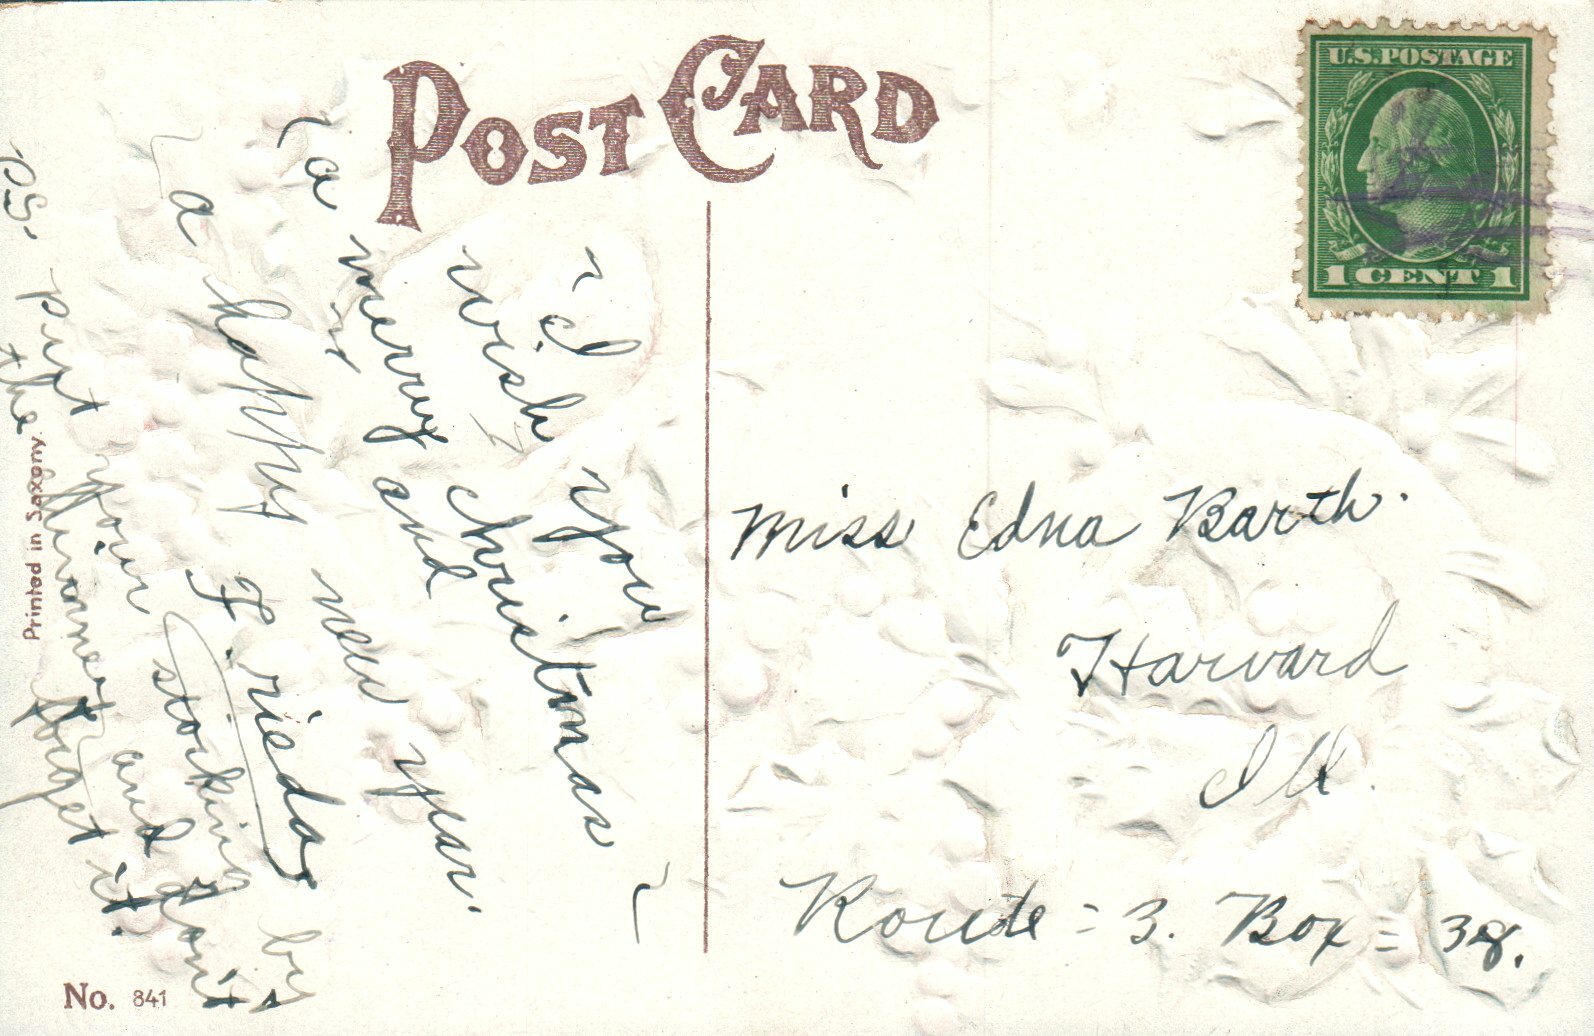 POST CARD
U.S. POSTAGE
1 CENT 1
I wish you
a merry christmas
and
a happy new year.
Frieda
P.S. put your stocking by
the and don't
forget it.
Miss Edna Barth.
Harvard
Ill.
Route = 3. Box = 38.
Printed in Saxony.
No. 841